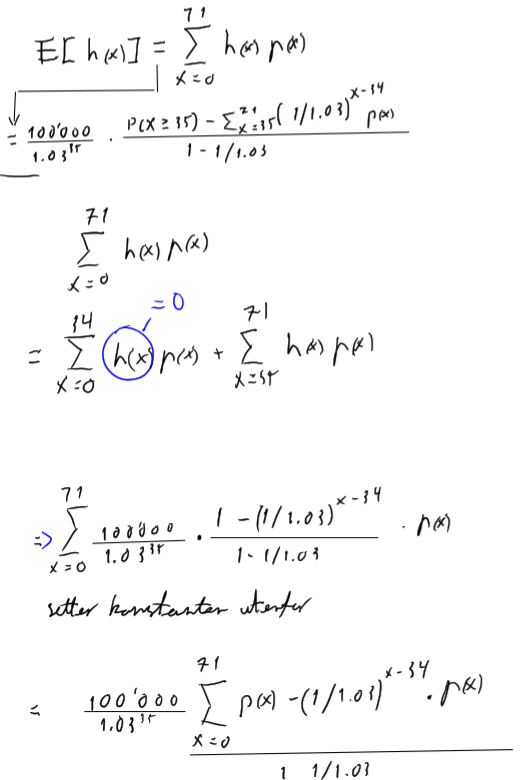 E[h(x)] = ∑_{x=0}^{71} h(x) p(x)
= 100'000 / 1.03^35 · (P(X ≥ 35) - ∑_{x=35}^{71} (1/1.03)^{x-34} p(x)) / (1 - 1/1.03)
∑_{x=0}^{71} h(x) p(x)
= 0
= ∑_{x=0}^{34} h(x) p(x) + ∑_{x=35}^{71} h(x) p(x)
=> ∑_{x=0}^{71} 100'000 / 1.03^35 · (1 - (1/1.03)^{x-34}) / (1 - 1/1.03) · p(x)
setter konstanter utenfor
= 100'000 / 1.03^35 ∑_{x=0}^{71} p(x) - (1/1.03)^{x-34} · p(x) / 1 1/1.03